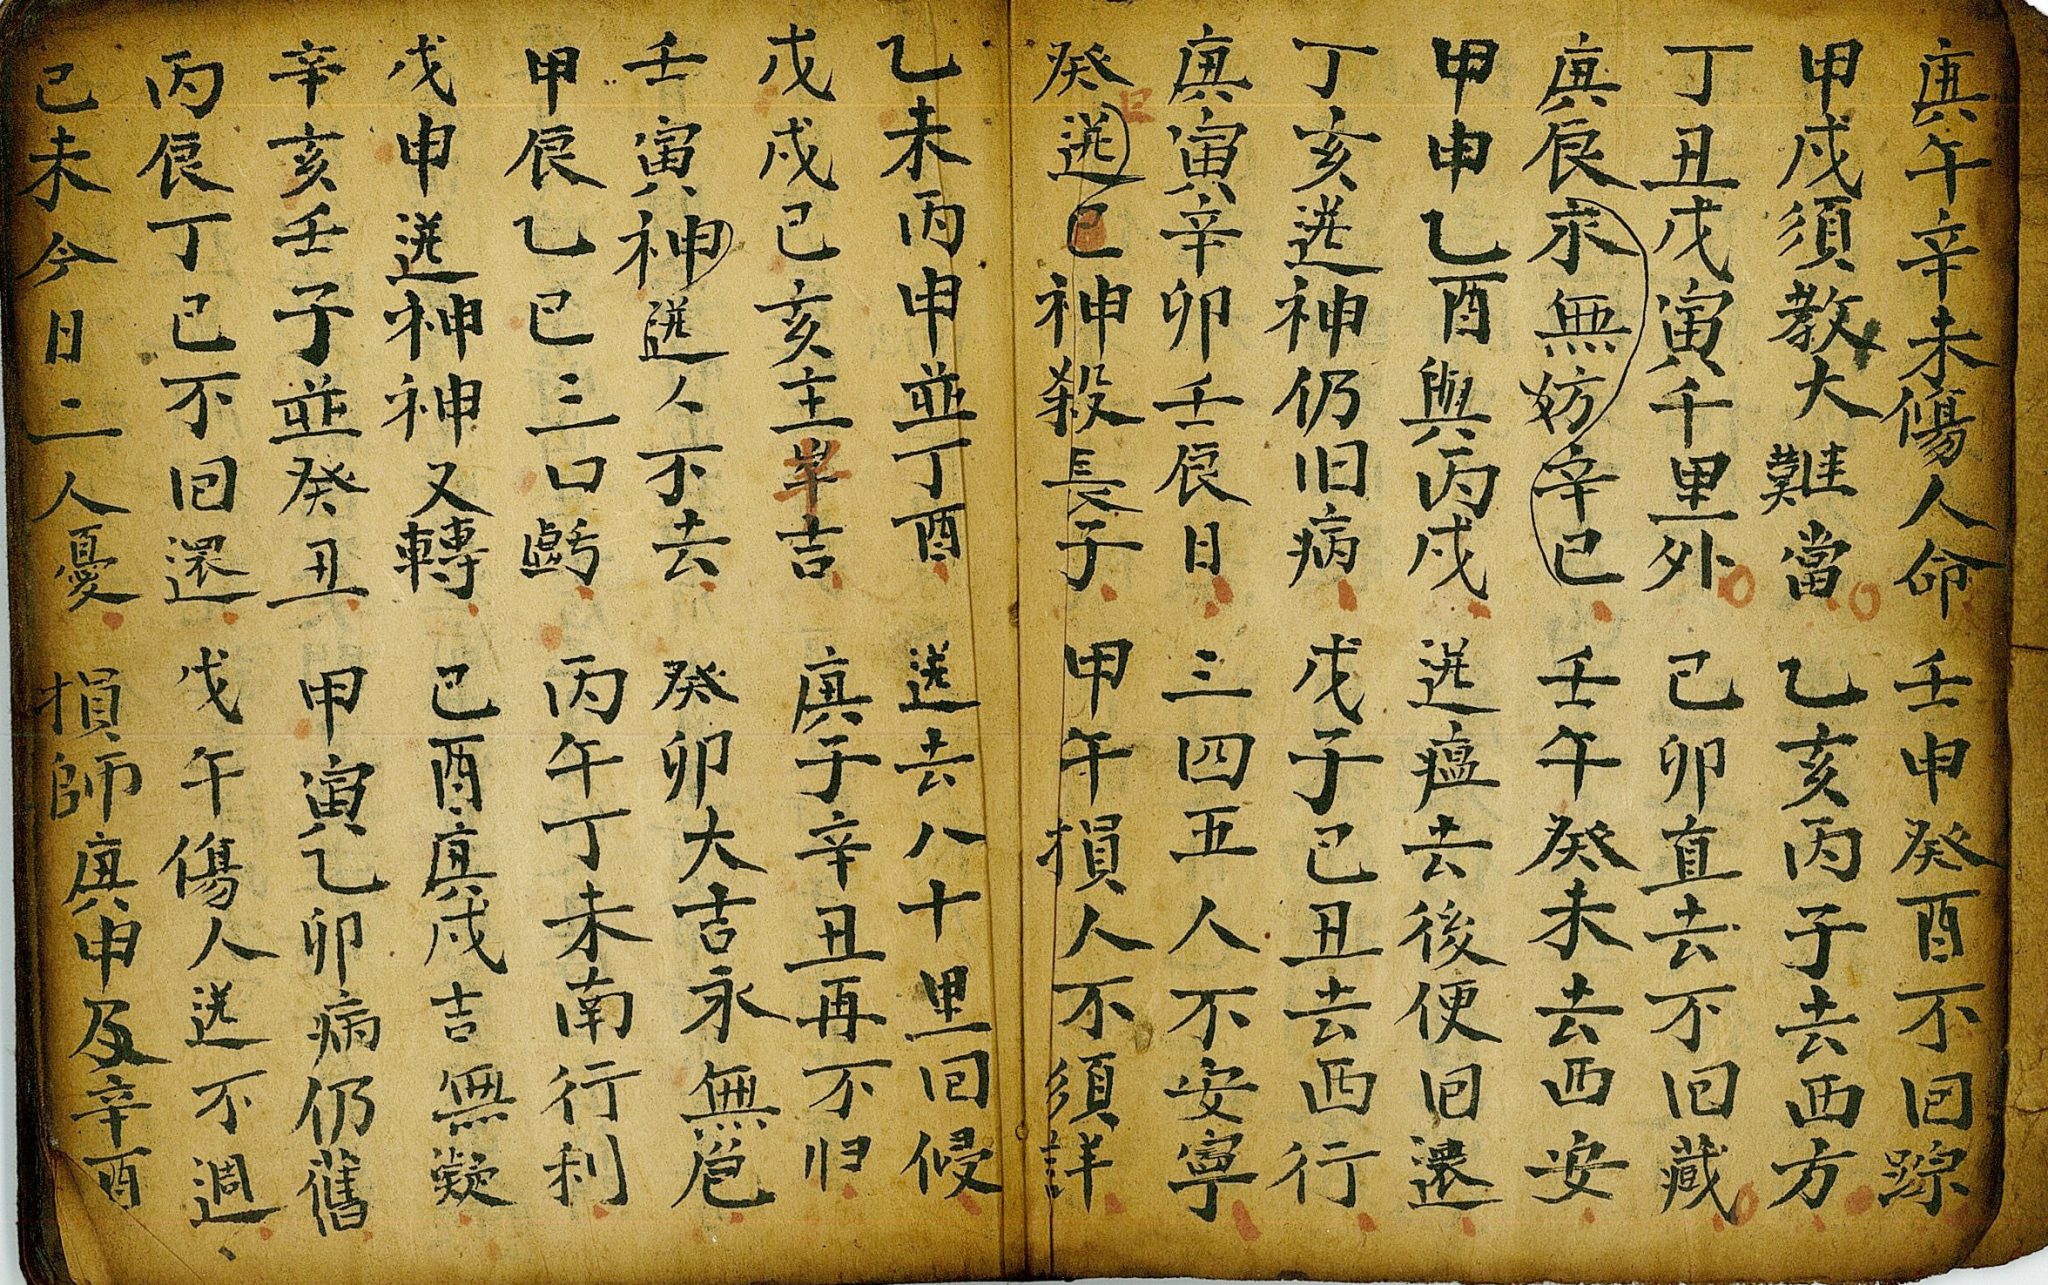 庚午辛未傷人命壬申癸酉不回踪
甲戌須教大難當乙亥丙子去西方
丁丑戊寅千里外己卯直去不回藏
庚辰求無妨辛巳壬午癸未去西安
甲申乙酉與丙戌送瘟去後便回還
丁亥送神仍旧病戊子己丑去西行
庚寅辛卯壬辰日三四五人不安寧
癸送巳神殺長子甲午損人不須詳
乙未丙申並丁酉送去八十里回侵
戊戌己亥主半吉庚子辛丑再不归
壬寅神送人不去癸卯大吉永無危
甲辰乙巳三口虧丙午丁未南行利
戊申送神神又轉己酉庚戌吉無凝
辛亥壬子並癸丑甲寅乙卯病仍舊
丙辰丁巳不回還戊午傷人送不週
己未今日二人憂損師庚申及辛酉